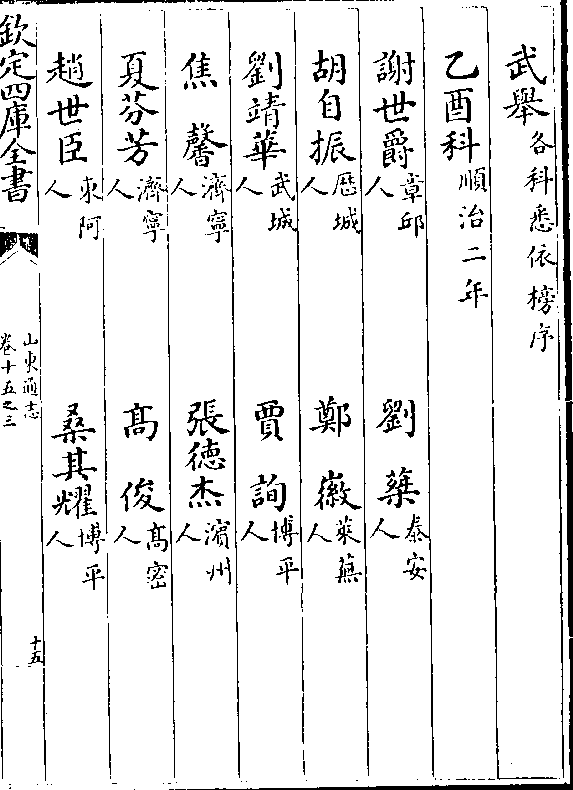 武舉各科悉依榜序
乙酉科順治二年
謝世爵章邱人 劉蘃泰安人
胡自振歷城人 鄭徽萊蕪人
劉靖華武城人 賈詢博平人
焦馨濟寧人 張德杰濱州人
夏芬芳濟寧人 高俊高密人
趙世臣東阿人 桑其耀博平人
欽定四庫全書
山東通志
卷十五之三
十五